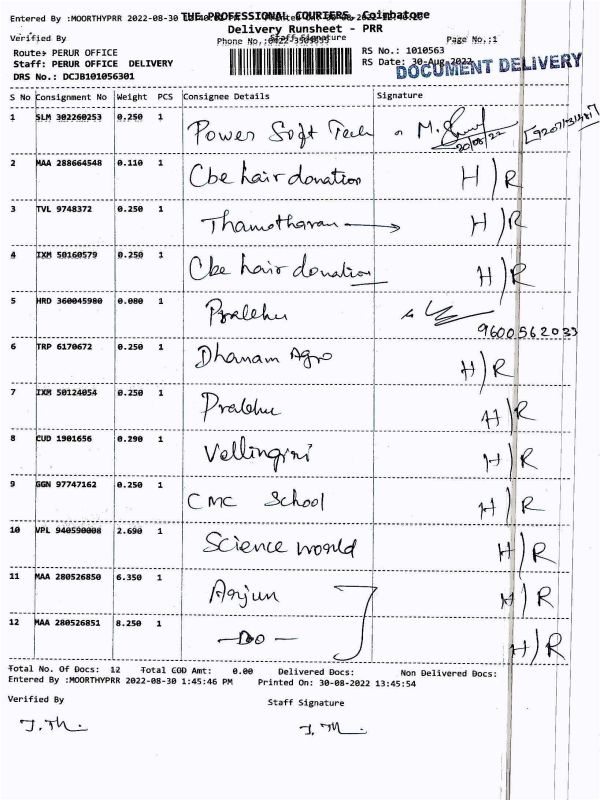 THE PROFESSIONAL COURIERS, Coimbatore
Entered By :MOORTHYPRR 2022-08-30
Delivery Runsheet - PRR
Verified By Staff Signature
Phone No.: Page No.:1
Route: PERUR OFFICE RS No.: 1010563
Staff: PERUR OFFICE DELIVERY RS Date: 30-Aug-2022
DOCUMENT DELIVERY
DRS No.: DCJB101056301
S No Consignment No Weight PCS Consignee Details Signature
1 SLM 302260253 0.250 1 Power Soft Tech
2 MAA 288664548 0.110 1 Cbe hair donation H)R
3 TVL 9748372 0.250 1 Thamotharan H)R
4 IXM 50160579 0.250 1 Cbe hair donation H)R
5 HRD 360045980 0.080 1 Prabhu 9600562033
6 TRP 6170672 0.250 1 Dhanam Agro H)R
7 IXM 50124054 0.250 1 Prabhu H)R
8 CUD 1901656 0.290 1 Vellingiri H)R
9 GGN 97747162 0.250 1 CMC School H)R
10 VPL 940590008 2.690 1 Science world H)R
11 MAA 280526850 6.350 1 Arjun H)R
12 MAA 280526851 8.250 1 -Do- H)R
Total No. Of Docs: 12 Total COD Amt: 0.00 Delivered Docs: Non Delivered Docs:
Entered By :MOORTHYPRR 2022-08-30 1:45:46 PM Printed On: 30-08-2022 13:45:54
Verified By Staff Signature